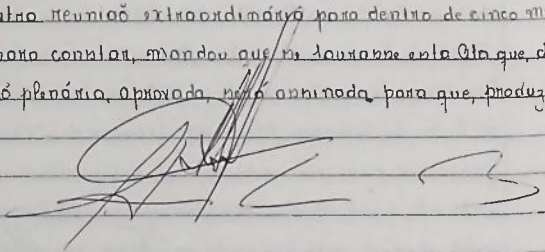 utra reunião extraordinária para dentro de cinco m
para constar, mandou que se lavrasse esta Ata que, d
ó plenária, aprovada, será assinada para que, produz